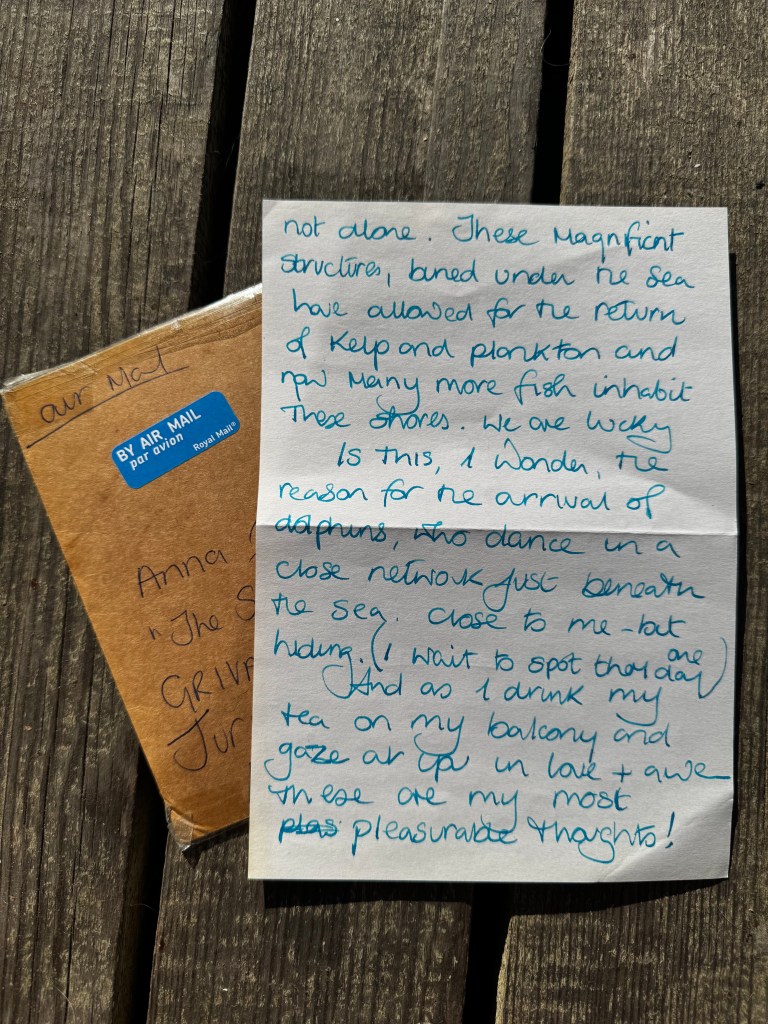 air Mail
BY AIR MAIL
par avion
Royal Mail®
Anna
"The S
GRIVE
Jur
not alone. These Magnificent
structures, buried under the sea
have allowed for the return
of Kelp and plankton and
now Many more fish inhabit
These shores. We are lucky
Is this, I wonder, the
reason for the arrival of
dolphins, who dance in a
close network just beneath
the sea. close to me - but
hiding. (I wait to spot them one day)
And as I drink my
tea on my balcony and
gaze at in love + awe
these are my most
plas pleasurable thoughts!